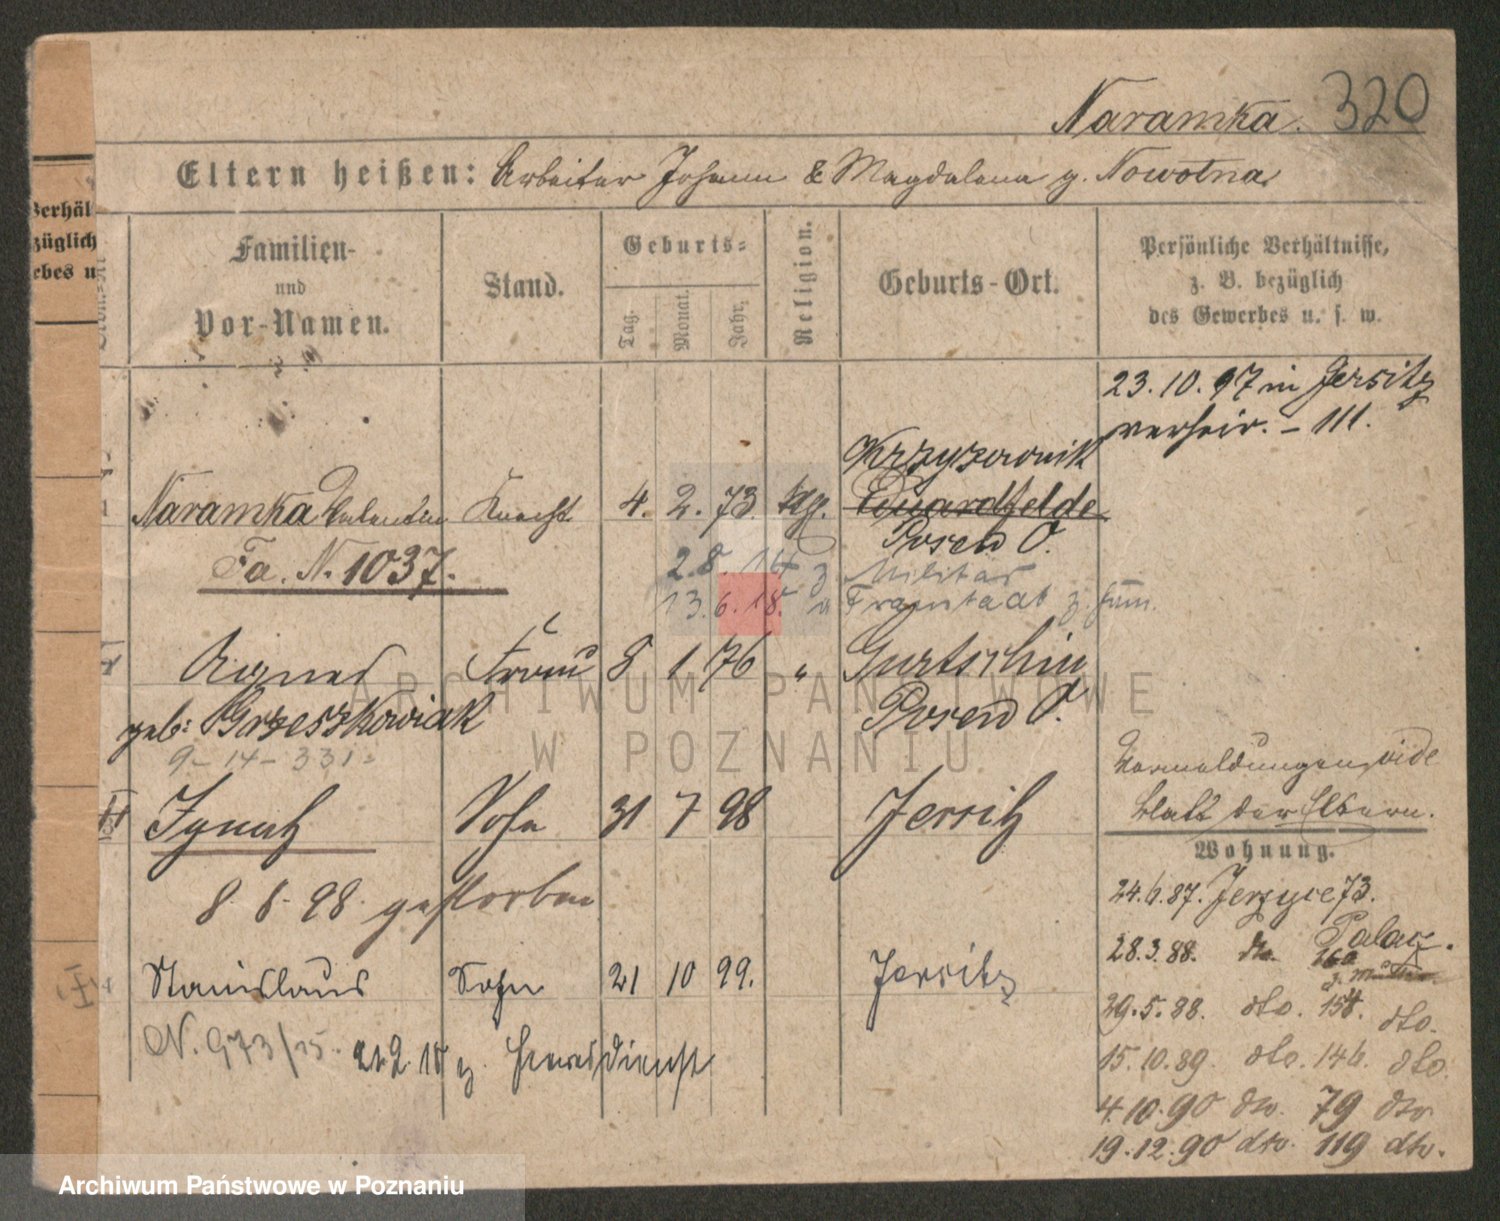 320
Naramka.
Eltern heißen: Arbeiter Johann & Magdalena g. Nowotna
Verhäl
züglich
ebes u
Familien-
und
Vor-Namen.
Stand.
Geburts-
Tag.
Monat.
Jahr.
Religion.
Geburts-Ort.
Persönliche Verhältnisse,
z. B. bezüglich
des Gewerbes u. s. w.
23.10.97 in Jersitz
verheir. - 111.
Krzyzownik
Naramka Valentin Knecht 4. 2. 73. ktg. Eduardfelde
Posen O.
Fa. N. 1037.
2.8.14 z Militär
13.6.18. v Fraustadt z. Fam.
II Agnes Frau 8 1 76 " Gurtschin
geb: Grzeszkowiak Posen O.
9-14-331=
Anmeldungen vide
Blatt der Eltern.
III Ignatz Sohn 31 7 98 Jersitz
8.8.98 gestorben
Wohnung.
24.6.87. Jerzyce 73.
28.3.88. dto. Palacz.
29.5.88. dto. 158. dto.
15.10.89. dto. 146. dto.
4.10.90 dto. 79 dto.
19.12.90 dto. 119 dto.
IV Stanislaus Sohn 21 10 99. Jersitz
N. 973/15. 21.2.18 z. Heeresdienst
ARCHIWUM PAŃSTWOWE
W POZNANIU
Archiwum Państwowe w Poznaniu